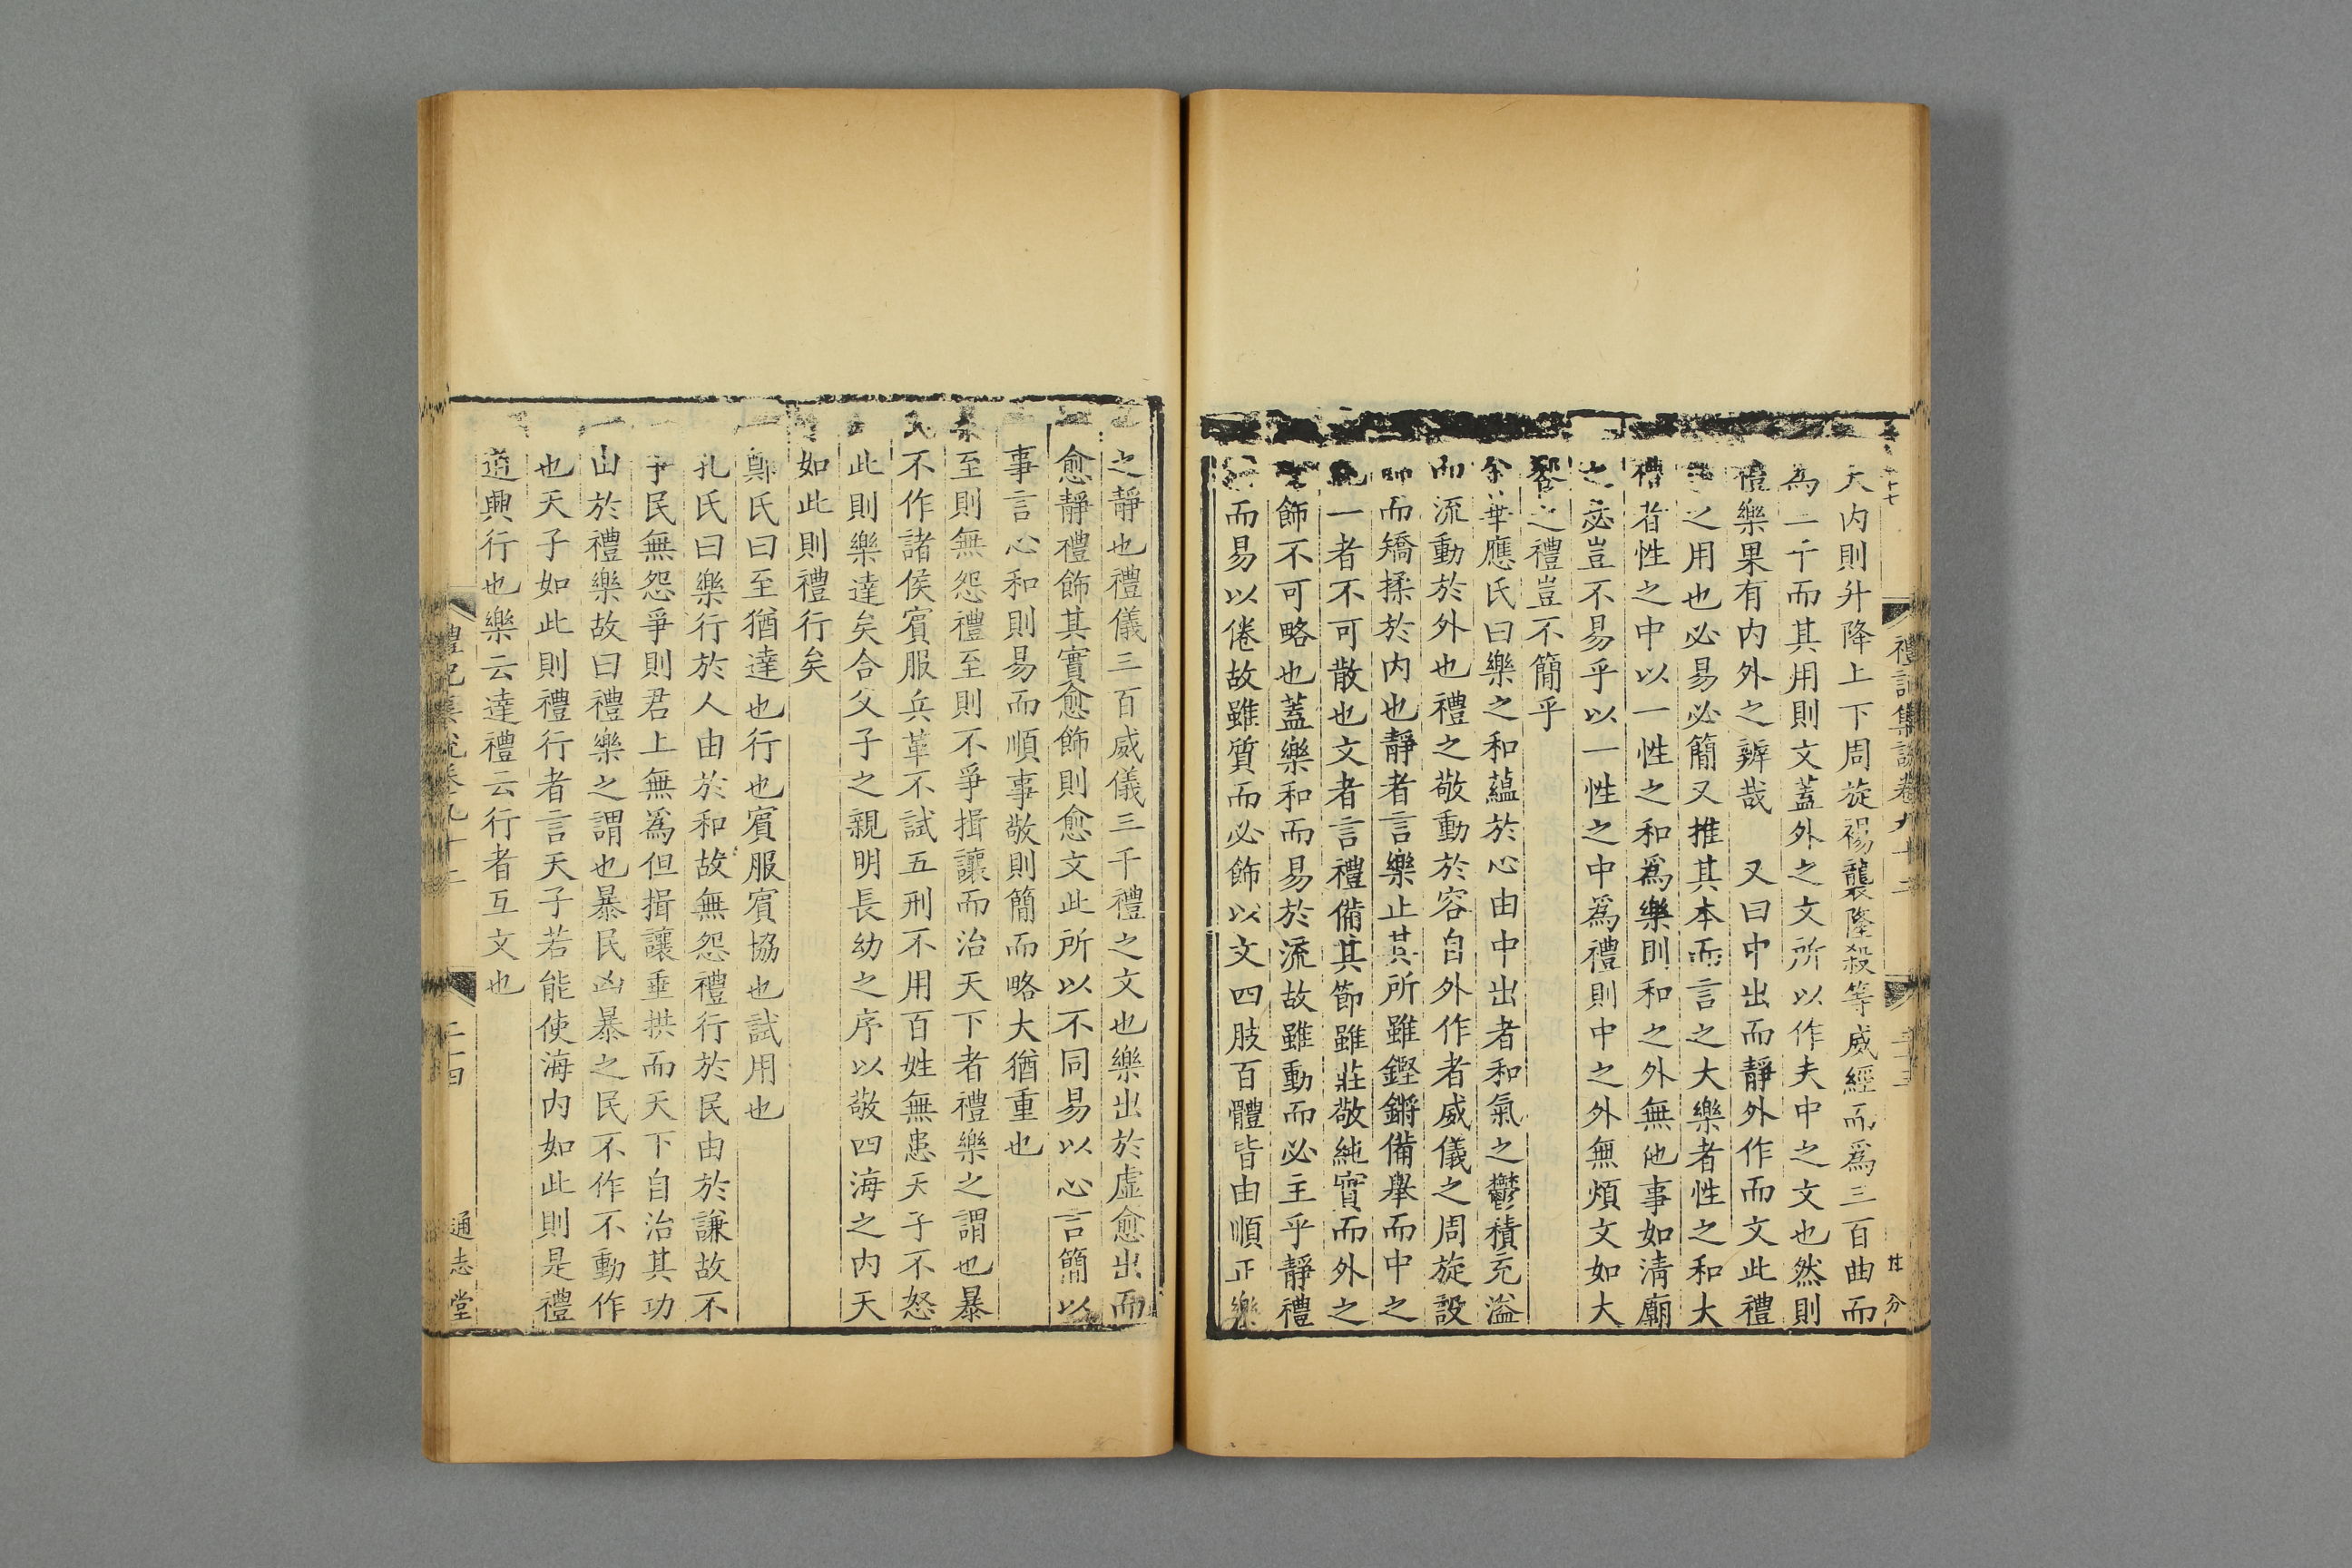 大内則升降上下周旋裼襲隆殺等威經而爲三百曲而
為二千而其用則文蓋外之文所以作夫中之文也然則
禮樂果有内外之辨哉 又曰中出而靜外作而文此禮
之用也必易必簡又推其本而言之大樂者性之和大
禮者性之中以一性之和爲樂則和之外無他事如清廟
之瑟豈不易乎以一性之中爲禮則中之外無煩文如大
之禮豈不簡乎
金華應氏曰樂之和蘊於心由中出者和氣之鬱積充溢
而流動於外也禮之敬動於容自外作者威儀之周旋設
飾而矯揉於内也靜者言樂止其所雖鏗鏘備舉而中之
一者不可散也文者言禮備其節雖莊敬純實而外之
飾不可略也蓋樂和而易於流故雖動而必主乎靜禮
而易以倦故雖質而必飾以文四肢百體皆由順正樂
禮記集說卷九十二
之靜也禮儀三百威儀三千禮之文也樂出於虛愈出而
愈靜禮飾其實愈飾則愈文此所以不同易以心言簡以
事言心和則易而順事敬則簡而略大猶重也
樂至則無怨禮至則不爭揖讓而治天下者禮樂之謂也暴
民不作諸侯賓服兵革不試五刑不用百姓無患天子不怒
此則樂達矣合父子之親明長幼之序以敬四海之内天
如此則禮行矣
鄭氏曰至猶達也行也賓服賓協也試用也
孔氏曰樂行於人由於和故無怨禮行於民由於謙故不
爭民無怨爭則君上無爲但揖讓垂拱而天下自治其功
由於禮樂故曰禮樂之謂也暴民凶暴之民不作不動作
也天子如此則禮行者言天子若能使海内如此則是禮
道興行也樂云達禮云行者互文也
禮記集說卷九十二 二十四 通志堂